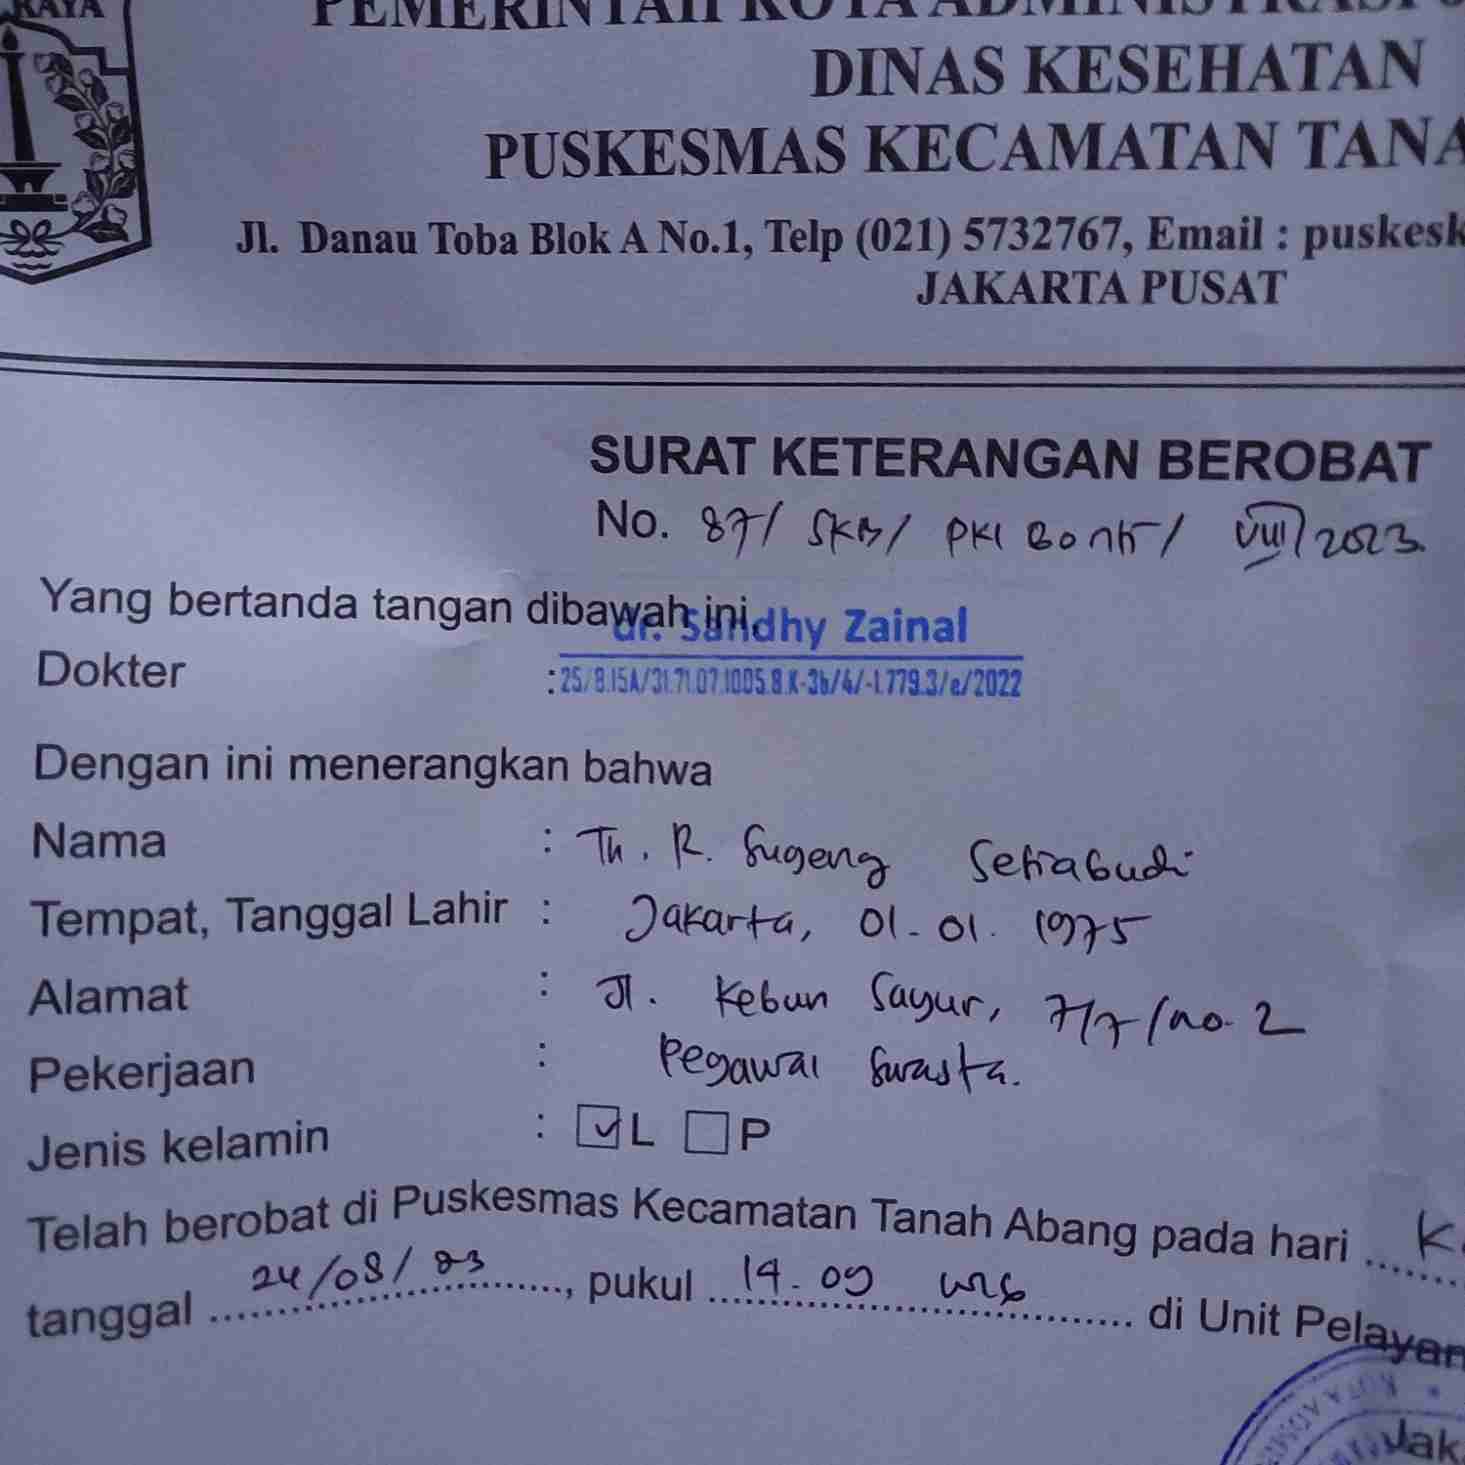 RAYA
PEMERINTAH KOTA ADMINISTRASI
DINAS KESEHATAN
PUSKESMAS KECAMATAN TANA
Jl. Danau Toba Blok A No.1, Telp (021) 5732767, Email : puskesk
JAKARTA PUSAT
SURAT KETERANGAN BEROBAT
No. 87/ SKB/ PKI /VIII/2023.
Yang bertanda tangan dibawah ini,
dr. Sandhy Zainal
Dokter :
25/8.15A/31.71.07.1005.8.K-3b/4/-1.779.3/e/2022
Dengan ini menerangkan bahwa
Nama : Th. R. Sugeng Setiabudi
Tempat, Tanggal Lahir : Jakarta, 01-01. 1975
Alamat : Jl. Kebun Sayur, 7/7/no. 2
Pekerjaan : Pegawai Swasta.
Jenis kelamin : L P
Telah berobat di Puskesmas Kecamatan Tanah Abang pada hari ... K
tanggal 24/08/23, pukul 14.09 WIB di Unit Pelayan
KOTA ADMINI
Jak